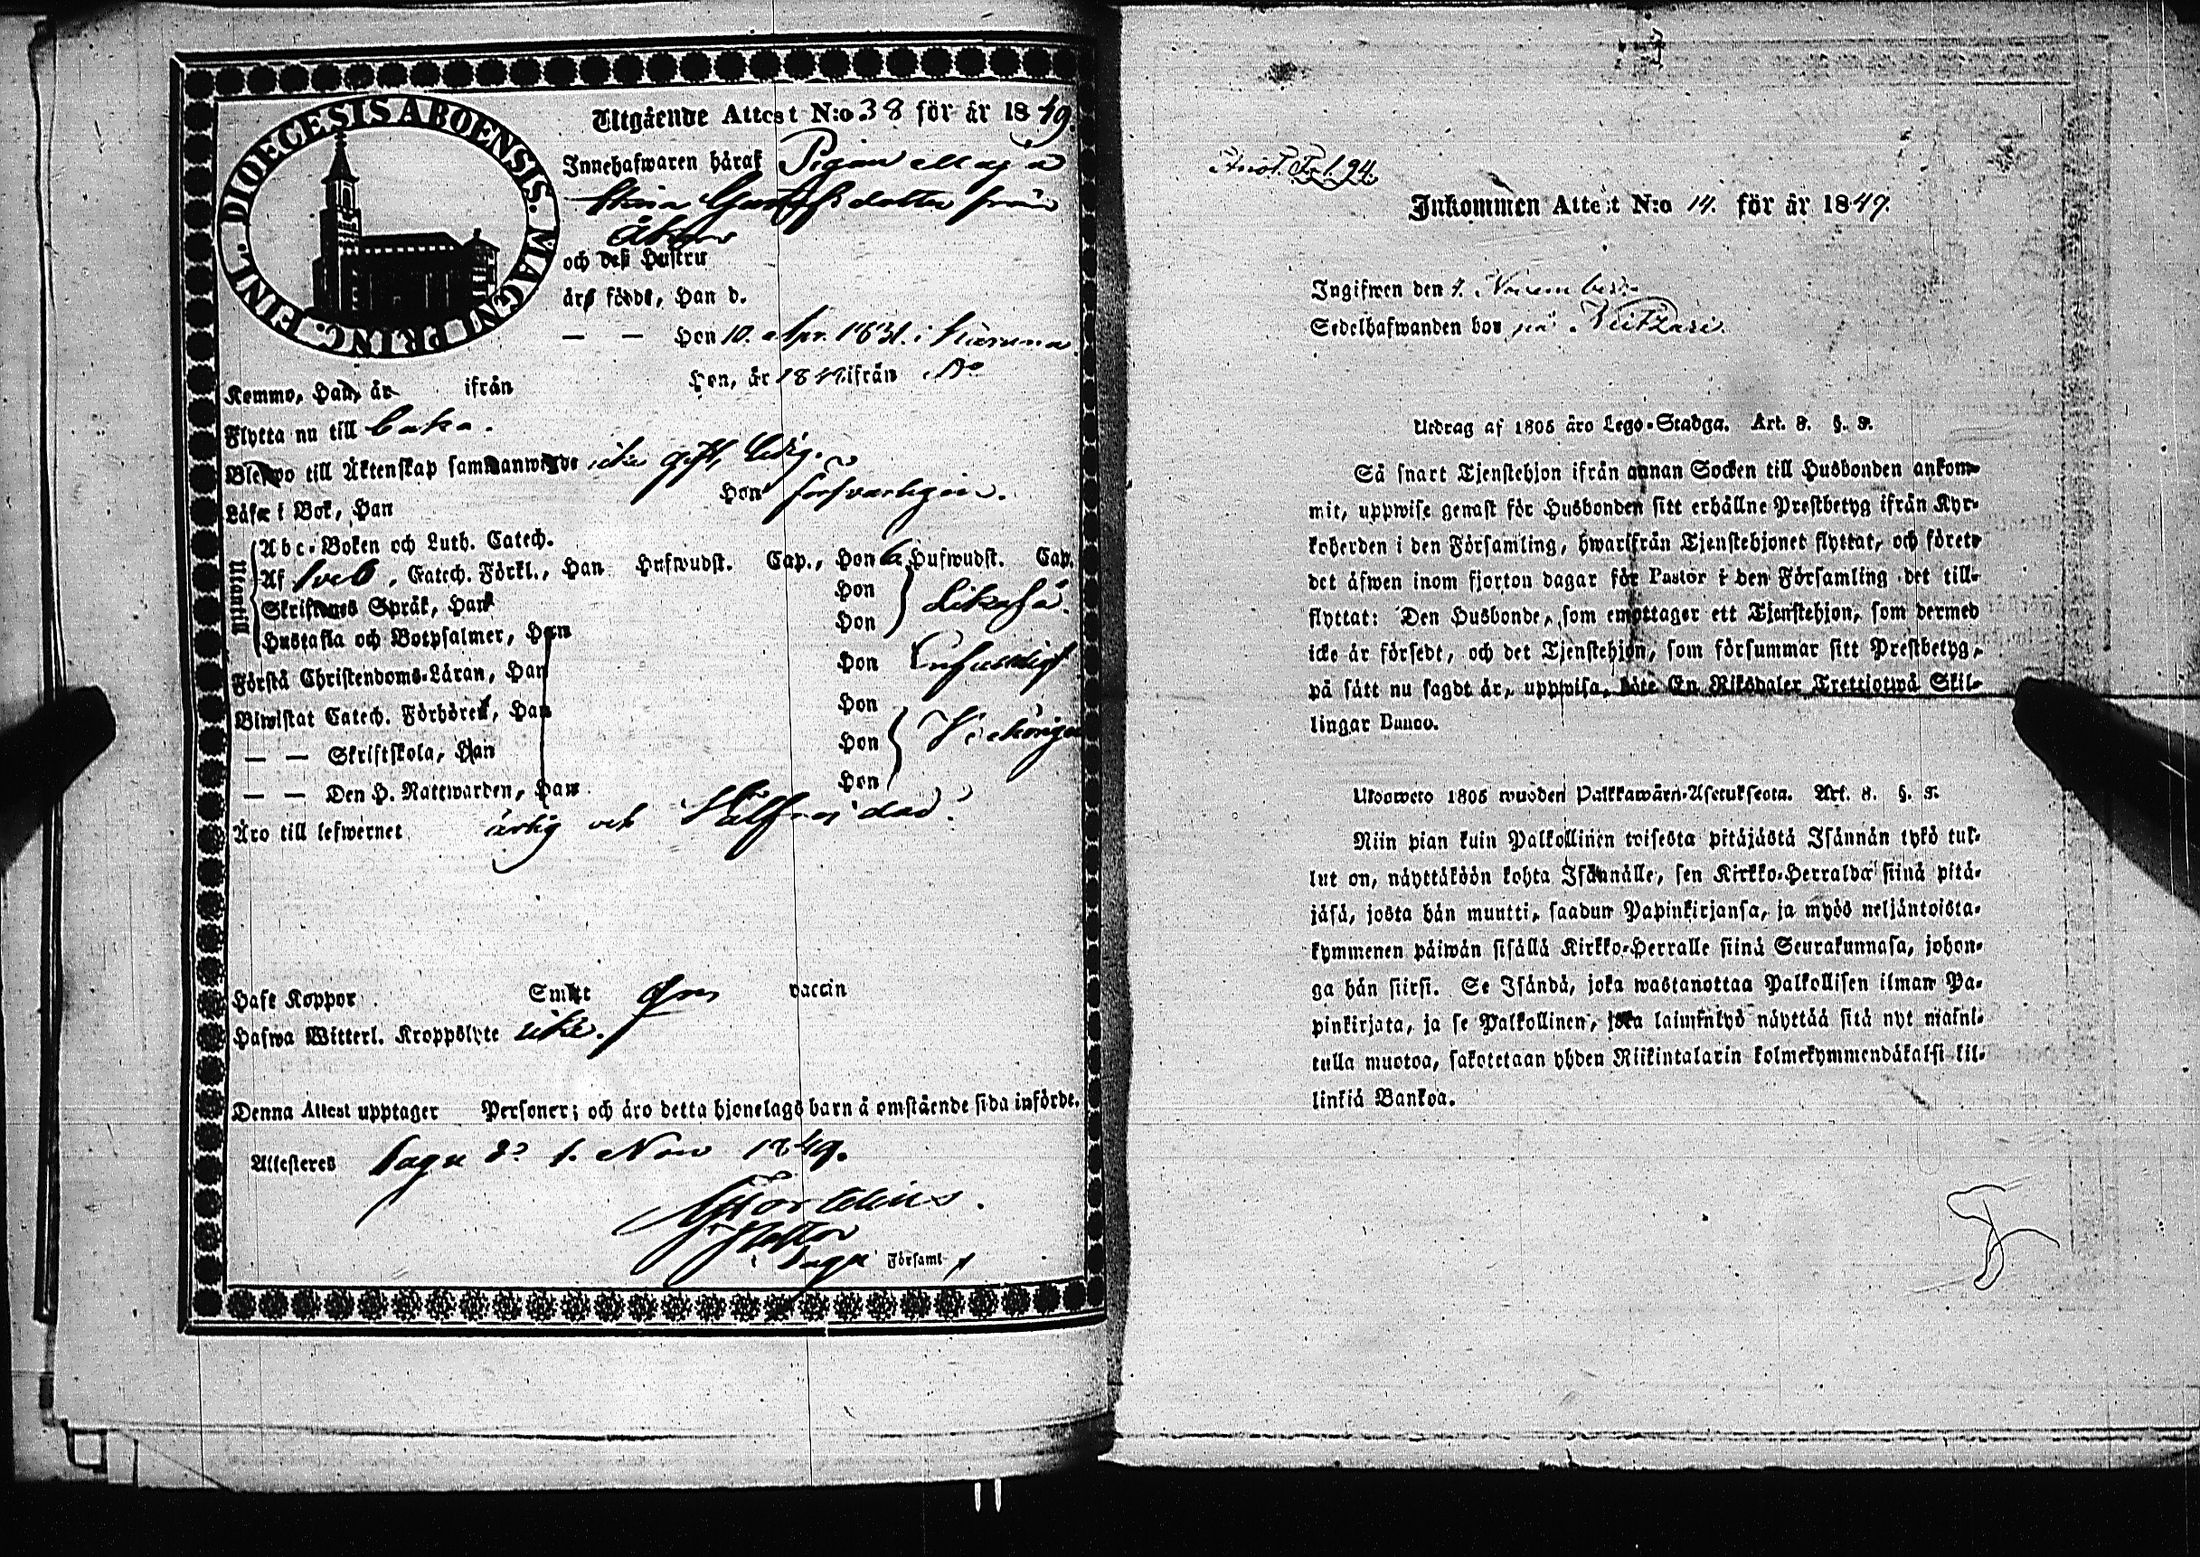 DIOECESIS ABOENSIS. MAGNI PRINC. FINL.
Utgående Attest N:o 38 för år 1849.
Innehafwaren håraf Pigan Maja
Stina Gustafsdotter från
och deß Hustru
äro födde, Han d.
— — Hon 10. Apr. 1831. i
Kommo, Han, år ifrån Hon, år 1849 ifrån
Flytta nu till
Blefwo till Äktenskap sammanwigde icke gift, ledig.
Läsa i Bok, Han Hon försvarligen.
Utantill
Abc-Boken och Luth. Catech.
Af Sveb, Catech. Förkl., Han Hufwudst. Cap., Hon 6 Hufwudst. Cap.
Skriftenes Språk, Han Hon
Hustafla och Botpsalmer, Han Hon likaså.
Förstå Christendoms-Läran, Han Hon Enfaldigt
Biwistat Catech. Förhören, Han Hon
— — Skriftskola, Han Hon Vederbörigen
— — Den H. Nattwarden, Han Hon
Äro till lefwernet ärlig och
Haft Koppor Smitt vaccin
Hafwa Witterl. Kroppslyte icke.
Denna Attest upptager Personer; och äro detta hjonelags barn å omstående sida införde.
Attesteres Sagu d. 1. Nov 1849.
i Sagu Församl
Annot. Fol. 94.
Inkommen Attest N:o 14. för år 1849.
Ingifwen den 4. November
Sedelhafwanden bor på
Utdrag af 1805 års Lego-Stadga. Art. 8. §. 9.
Så snart Tjenstehjon ifrån annan Socken till Husbonden ankom-
mit, uppwise genast för Husbonden sitt erhållne Prestbetyg ifrån Kyr-
koherden i den Församling, hwarifrån Tjenstehjonet flyttat, och förete
det äfwen inom fjorton dagar för Pastor i den Församling det till-
flyttat: Den Husbonde, som emottager ett Tjenstehjon, som dermed
icke är försedt, och det Tjenstehjon, som försummar sitt Prestbetyg,
på sätt nu sagdt är, uppwisa, böte En Riksdaler Trettiotwå Skil-
lingar Banco.
Uloswetо 1805 wuoden Palkkawäen-Asetuksesta. Art. 8. §. 9.
Niin pian kuin Palkollinen toisesta pitäjästä Isännän tykö tul-
lut on, näyttäköön kohta Isännälle, sen Kirkko-Herralda siinä pitä-
jäsä, josta hän muutti, saadun Papinkirjansa, ja myös neljäntoista-
kymmenen päiwän sisällä Kirkko-Herralle siinä Seurakunnasa, johon-
ga hän siirsi. Se Isändä, joka wastanottaa Palkollisen ilman Pa-
pinkirjata, ja se Palkollinen, joka laiminlyö näyttää sitä nyt mainit-
tulla muotoa, sakotetaan yhden Riikintalarin kolmekymmendäkaksi kil-
linkiä Bankoa.